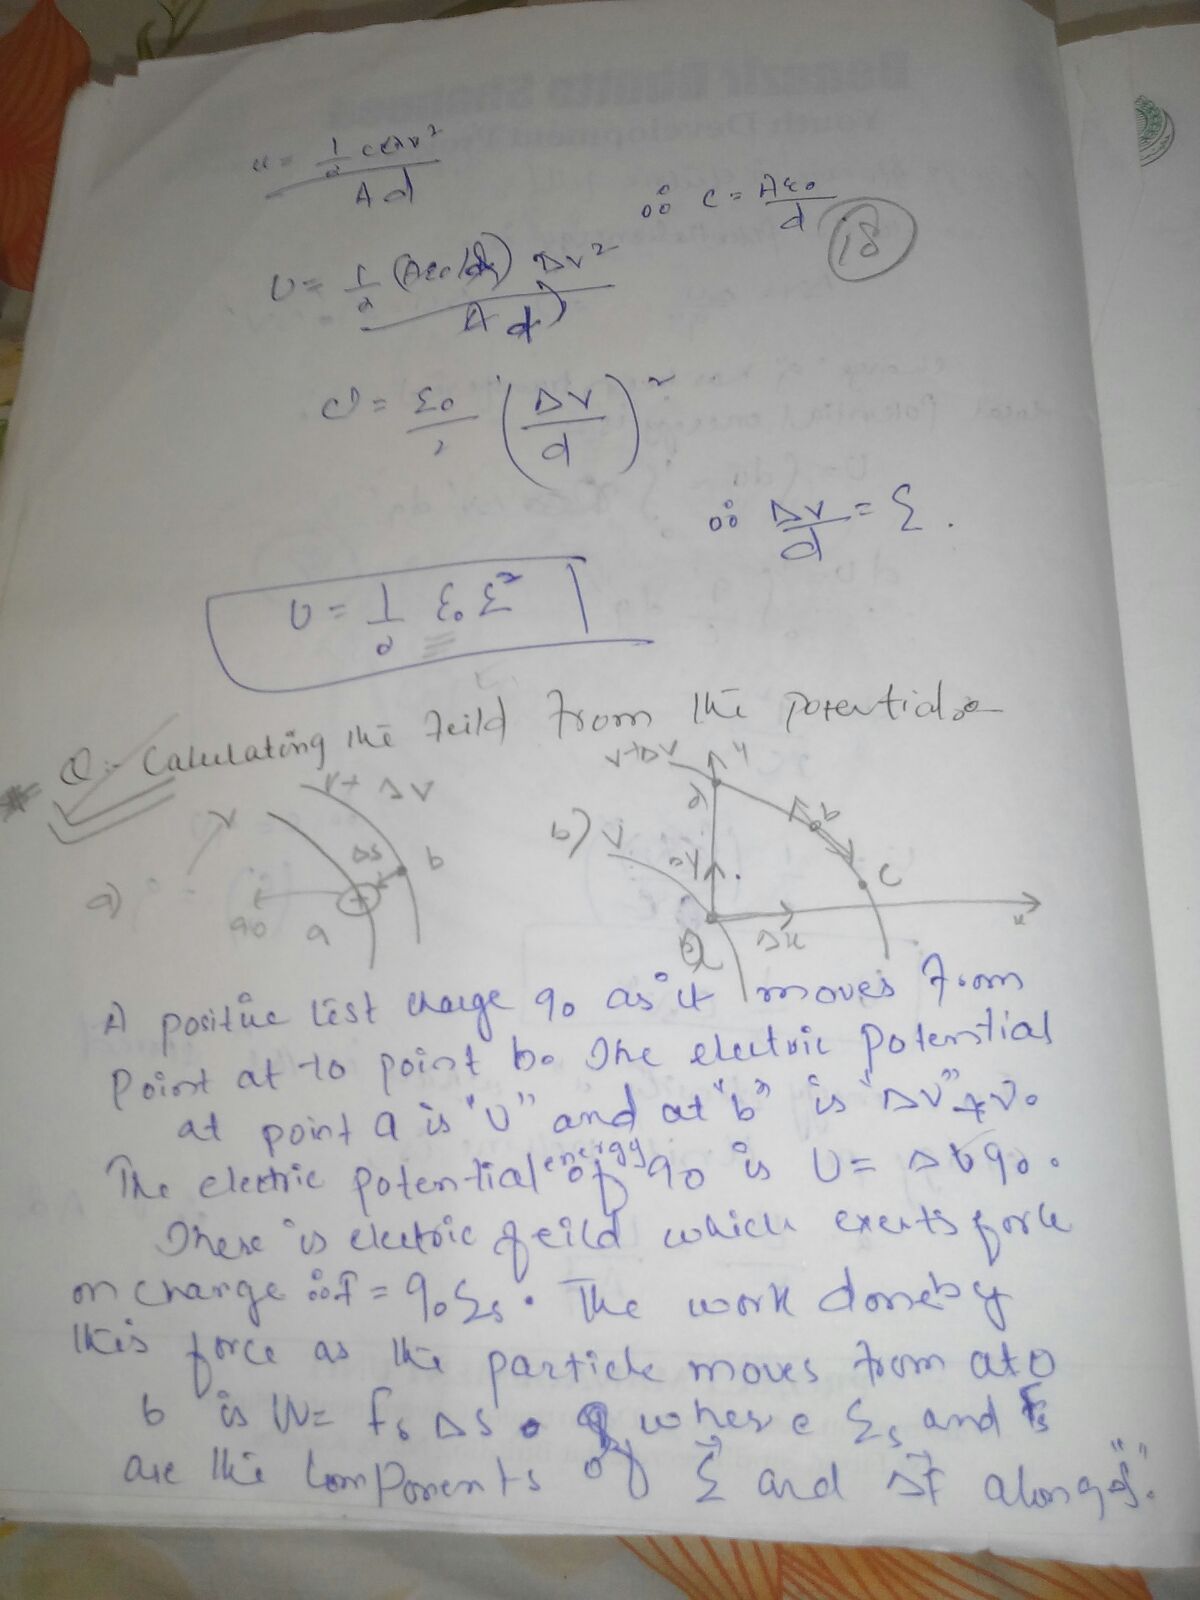 u = 1/2 c ΔV²
A d
∴ C = Aε₀/d
18
U = 1/2 (Aε₀/d) ΔV²
A d
U = ε₀/2 (ΔV/d)²
∴ ΔV/d = Σ.
U = 1/2 ε₀ Σ²
Q:- Calculating the feild from the potential:-
V
V + ΔV
a)
Δs
b
q₀
a
b)
V
V+ΔV
y
d
Δy
b
c
a
Δx
x
A positive test charge q₀ as it moves from
Point at to point b. The electric potential
at point a is "V" and at "b" is "ΔV"+V.
The electric potential energy of q₀ is U = ΔVq₀.
There is electric feild which exerts force
on charge ∴ F = q₀Σs. The work done by
this force as the particle moves from a to
b is W = Fs Δs. where Σs and Fs
are the components of Σ and ΔF along "s".